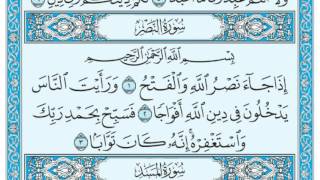 سُورَةُ النَّصْرِ
بِسْمِ اللَّهِ الرَّحْمَٰنِ الرَّحِيمِ
إِذَا جَآءَ نَصْرُ اللَّهِ وَالْفَتْحُ ۝١ وَرَأَيْتَ النَّاسَ
يَدْخُلُونَ فِي دِينِ اللَّهِ أَفْوَاجًا ۝٢ فَسَبِّحْ بِحَمْدِ رَبِّكَ
وَاسْتَغْفِرْهُ ۚ إِنَّهُ كَانَ تَوَّابًا ۝٣
سُورَةُ الْمَسَدِ